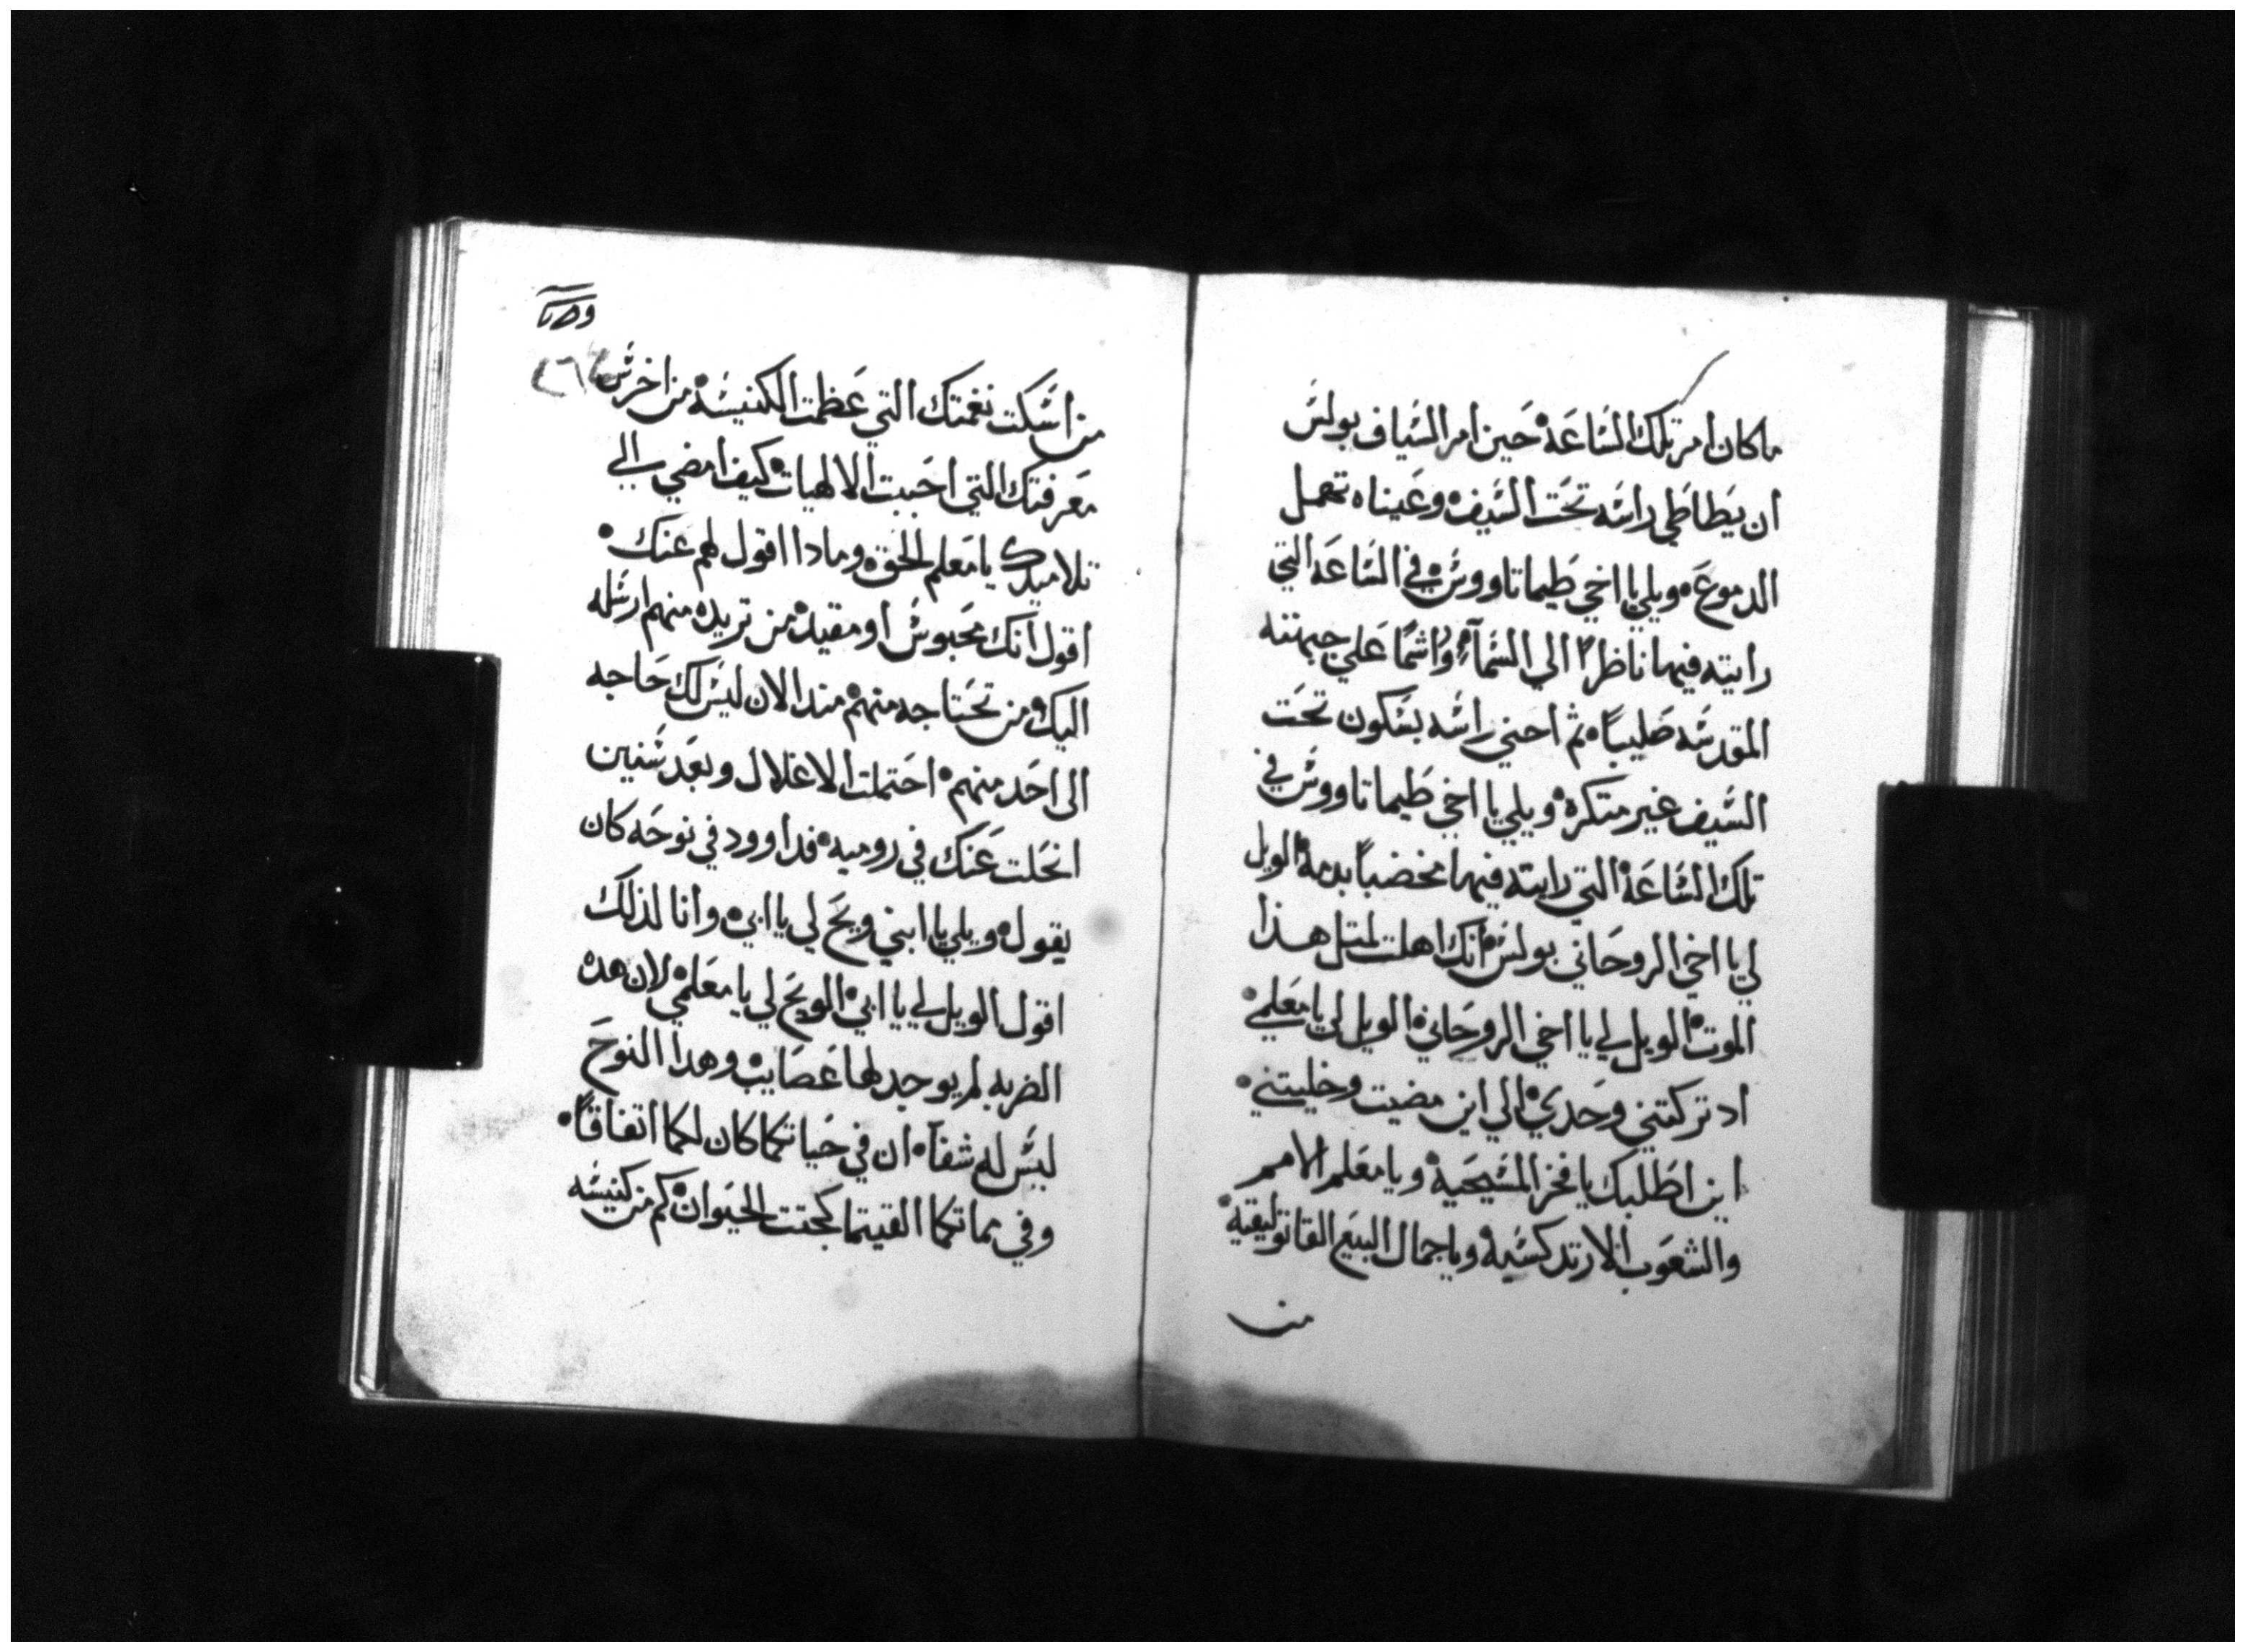 ما كان امر تلك الساعة حين امر السياف بولس
ان يطاطي راسه تحت السيف وعيناه تهمل
الدموع ويلي يا اخي طيماتاووس في الساعه التي
رايته فيها ناظرًا الي السماء وراشمًا علي جبهته
المقدسه صليبًا ثم احني راسه بسكون تحت
السيف غير متكره ويلي يا اخي طيماتاووس في
تلك الساعة التي رايته فيها مخضبًا بدمه الويل
لي يا اخي الروحاني بولس انك اهلت لمتل هذا
الموت الويل لي يا اخي الروحاني الويل لي يا معلمي
اد تركتني وحدي الي اين مضيت وخليتني
اين اطلبك يا فخر المسيحية ويا معلم الامم
والشعوب الارتدكسية ويا جمال البيع القاتوليقية
من
٤٦
من اسكت نغمتك التي عظمت الكنيسة من اخرس
معرفتك التي احببت الالهيات كيف امضي الي
تلاميدك يا معلم الحق ومادا اقول لهم عنك
اقول انك محبوس او مقيد من تريده منهم ارسله
اليك ومن تحتاجه منهم مند الان ليس لك حاجه
الى احد منهم احتملت الاغلال وبعد سنين
انحلت عنك في روميه فداوود في نوحه كان
يقول ويلي يا ابني ويح لي يا ابي وانا لذلك
اقول الويل لي يا ابي الويح لي يا معلمي لان هده
الضربه لم يوجد لها عصايب وهدا النوح
ليس له شفآ ان في حياتكما كان لكما اتفاقًا
وفي مماتكما القيتما كجتت الحيوان كم من كنيسه